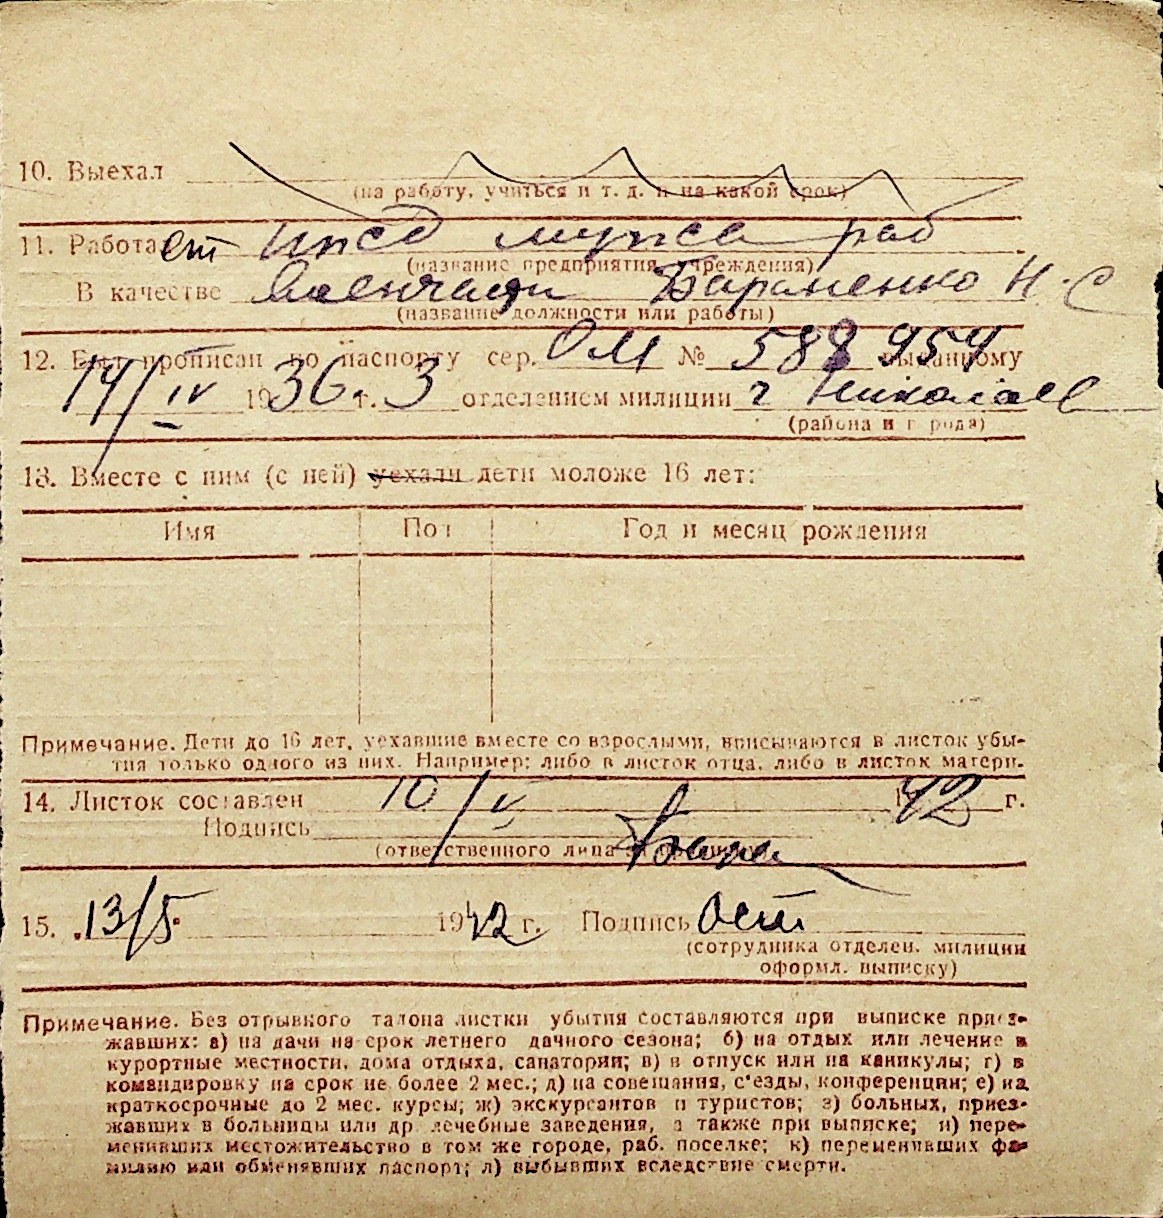 10. Выехал
(на работу, учиться и т. д. и на какой срок)
11. Работает ижд мужа раб
(название предприятия, учреждения)
В качестве Военчасти Бараненко Н. С
(название должности или работы)
12. Был прописан по паспорту сер. ОМ № 588 954 выданному
14/IV 1936 г. 3 отделением милиции г Николаев
(района и города)
13. Вместе с ним (с ней) уехали дети моложе 16 лет:
Имя Пол Год и месяц рождения
Примечание. Дети до 16 лет, уехавшие вместе со взрослыми, вписываются в листок убы-
тия только одного из них. Например: либо в листок отца, либо в листок матери.
14. Листок составлен 10/V 1942 г.
Подпись
(ответственного лица за прописку)
15. 13/5 1942 г. Подпись
(сотрудника отделен. милиции
оформл. выписку)
Примечание. Без отрывного талона листки убытия составляются при выписке приез-
жавших: а) на дачи на срок летнего дачного сезона; б) на отдых или лечение в
курортные местности, дома отдыха, санатории; в) в отпуск или на каникулы; г) в
командировку на срок не более 2 мес.; д) на совещания, с'езды, конференции; е) на
краткосрочные до 2 мес. курсы; ж) экскурсантов и туристов; з) больных, приез-
жавших в больницы или др. лечебные заведения, а также при выписке; и) пере-
менивших местожительство в том же городе, раб. поселке; к) переменивших фа-
милию или обменявших паспорт; л) выбывших вследствие смерти.